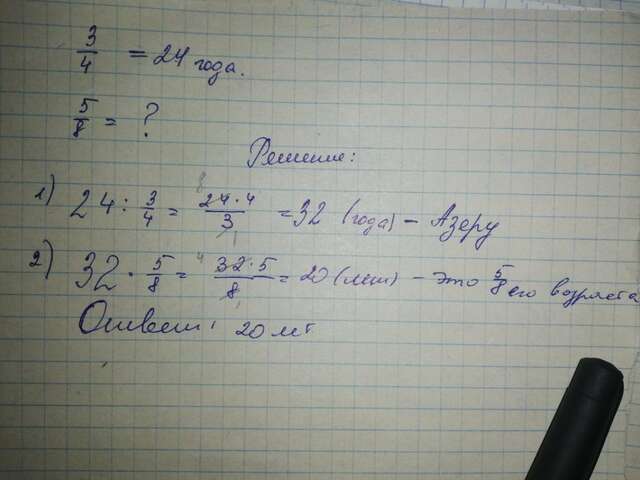 3/4 = 24 года.
5/8 = ?
Решение:
1) 24 : 3/4 = 24·4/3 = 32 (года) – Азеру
2) 32 · 5/8 = 32·5/8 = 20 (лет) – это 5/8 его возраста
Ответ: 20 лет